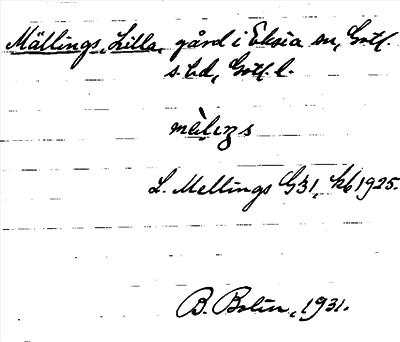 Mällings, Lilla, gård i Eksta sn, Gotl.
s. hd, Gotl. l.
mèlıŋs
L. Mellings G31, kb 1925.
B. Bolin, 1931.